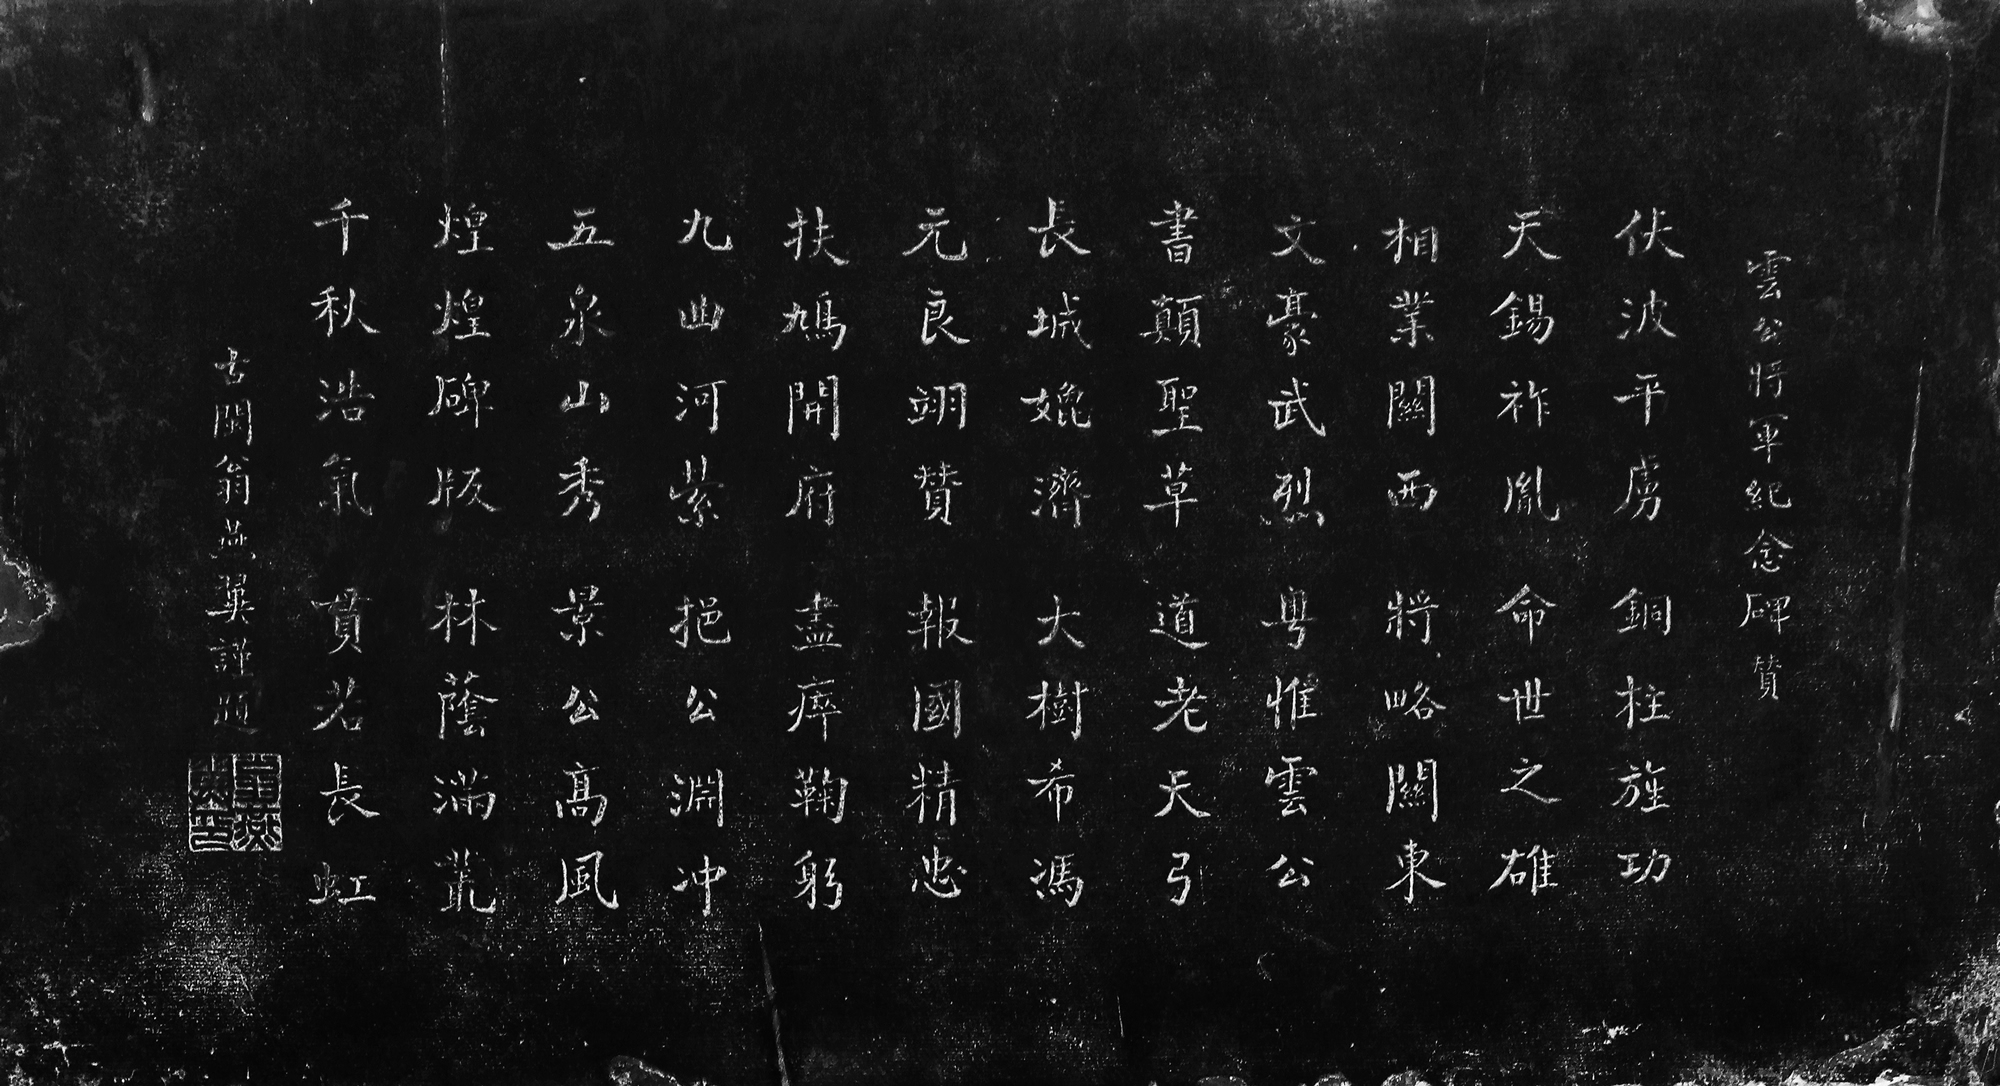 雲公將軍紀念碑贊
伏波平虜 銅柱旌功
天錫祚胤 命世之雄
相業關西 將略關東
文豪武烈 粵惟雲公
書顛聖草 道老天弓
長城媲濟 大樹希馮
元良翊贊 報國精忠
扶鳩開府 盡瘁鞠躬
九幽河縈 挹公淵沖
五泉山秀 景公高風
煌煌碑版 林蔭滿
千秋浩氣 貫若長虹
古閩翁燕翼謹題